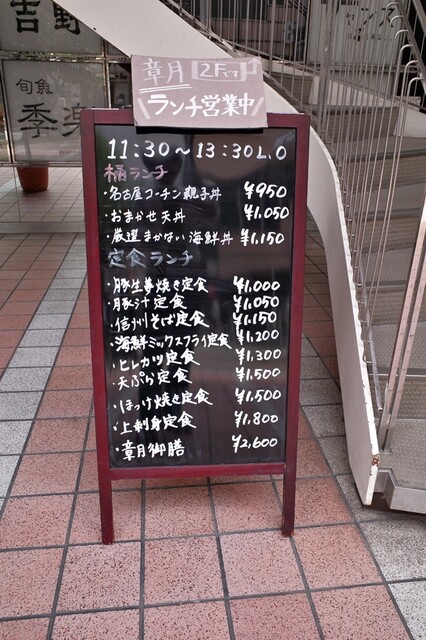 吉野
旬魚
季楽
章月 2Fです
ランチ営業中
11:30〜13:30L.O
桶ランチ
・名古屋コーチン親子丼 ¥950
・おまかせ天丼 ¥1,050
・厳選まかない海鮮丼 ¥1,150
定食ランチ
・豚生姜焼き定食 ¥1,000
・豚汁定食 ¥1,050
・信州そば定食 ¥1,150
・海鮮ミックスフライ定食 ¥1,200
・ヒレカツ定食 ¥1,300
・天ぷら定食 ¥1,500
・ほっけ焼き定食 ¥1,500
・上刺身定食 ¥1,800
・章月御膳 ¥2,600